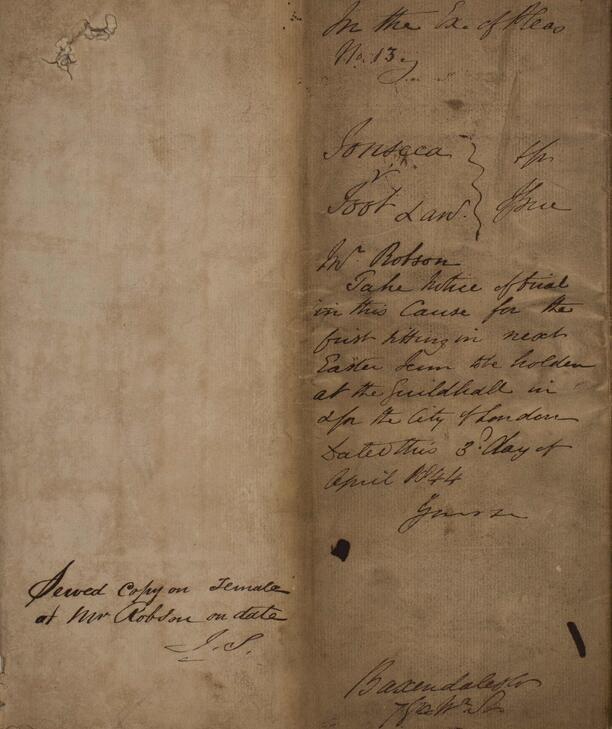 In the Ex. of Pleas
No. 13
Fonseca
v
Foot & anr.
Issue
Mr. Robson
Take Notice of trial
in this Cause for the
first sitting in next
Easter Term to be holden
at the Guildhall in
& for the City of London
Dated this 3d. day of
April 1844
Yours &c
Baxendale & Co
7 Gt. Wr. St
Served Copy on Female
at Mr Robson on date
J.S.